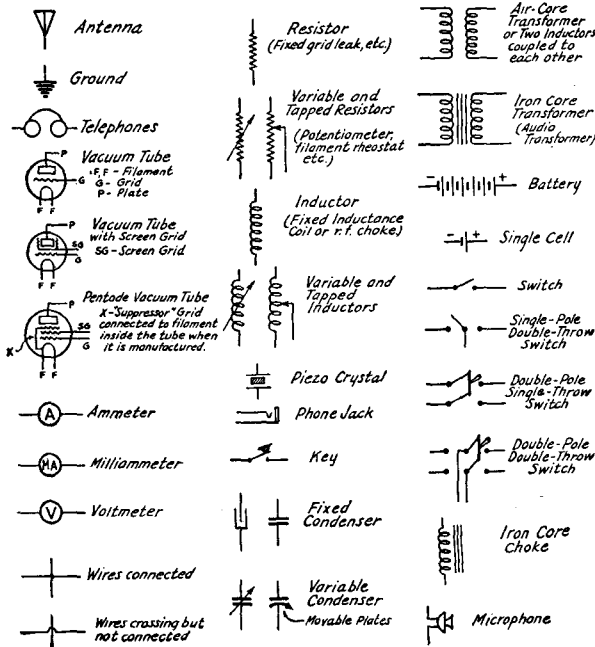 Antenna
Ground
Telephones
P
G
F F
Vacuum Tube
F, F - Filament
G - Grid
P - Plate
P
SG
G
F F
Vacuum Tube
with Screen Grid
SG - Screen Grid
P
SG
G
X
F F
Pentode Vacuum Tube
X-"Suppressor" Grid
connected to filament
inside the tube when
it is manufactured.
A
Ammeter
MA
Milliammeter
V
Voltmeter
Wires connected
Wires crossing but
not connected
Resistor
(Fixed grid leak, etc.)
Variable and
Tapped Resistors
(Potentiometer,
filament rheostat
etc.)
Inductor
(Fixed Inductance
Coil or r.f. choke)
Variable and
Tapped
Inductors
Piezo Crystal
Phone Jack
Key
Fixed
Condenser
Variable
Condenser
Movable Plates
Air-Core
Transformer
or Two Inductors
coupled to
each other
Iron Core
Transformer
(Audio
Transformer)
- +
Battery
- +
Single Cell
Switch
Single-Pole
Double-Throw
Switch
Double-Pole
Single-Throw
Switch
Double-Pole
Double-Throw
Switch
Iron Core
Choke
Microphone